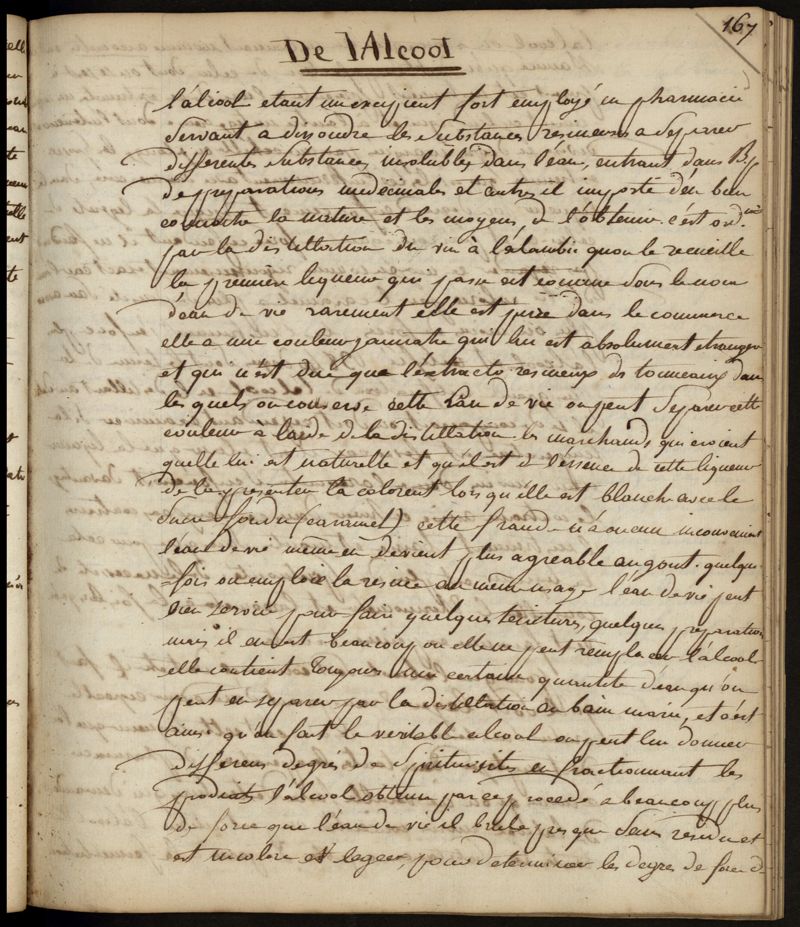 167
De l'Alcool
l'álcool etant un excipient fort employé en pharmacie
Servant a dissoudre les Substances resineuses a Separer
differentes Substances insolubles dans l'éau, entrant dans B.p
de preparations medecinales et autres il importe d'en bien
connoitre la nature et les moyens de l'obtenir c'est ord.nt
par la distillation du vin à l'alambic qu'on le recueille
la premiere liqueur qui passe est connue Sous le nom
d'éau de vie rarement elle est pure dans le commerce
elle a une couleur jaunatre qui lui est absolument etrangere
et qui n'est due que l'éxtracto resineux ds tonneaux dans
les quels on conserve cette Eau de vie on peut Separer cette
couleur à laide de la distillation les marchands qui croient
quelle lui est naturelle et qu'il est de l'éssence de cette liqueur
de la presenter la colorent lors qu'élle est blanche avec le
Sucre fondu (caramel) cette fraude n'á aucun inconvenient
l'éau de vie même en devient plus agreable au gout. quelque
=fois on emploie la resine au même usage l'éau de vie peut
bien servir pour faire quelques teintures, quelques preparations
mais il en est beaucoup ou elle ne peut remplacer l'álcool
elle contient toujours une certaine quantité d'éau qu'on
peut en separer par la distillation au bain marie, et c'ést
ainsi qu'on fait le veritable alcool on peut lui donner
differens degrés de Spirituosités en fractionnant les
produits l'álcool obtenu par ce procedé a beaucoup plus
de force que l'éau de vie il brule presque Sans residu et
est incolore et leger, pour determiner les degres de force de